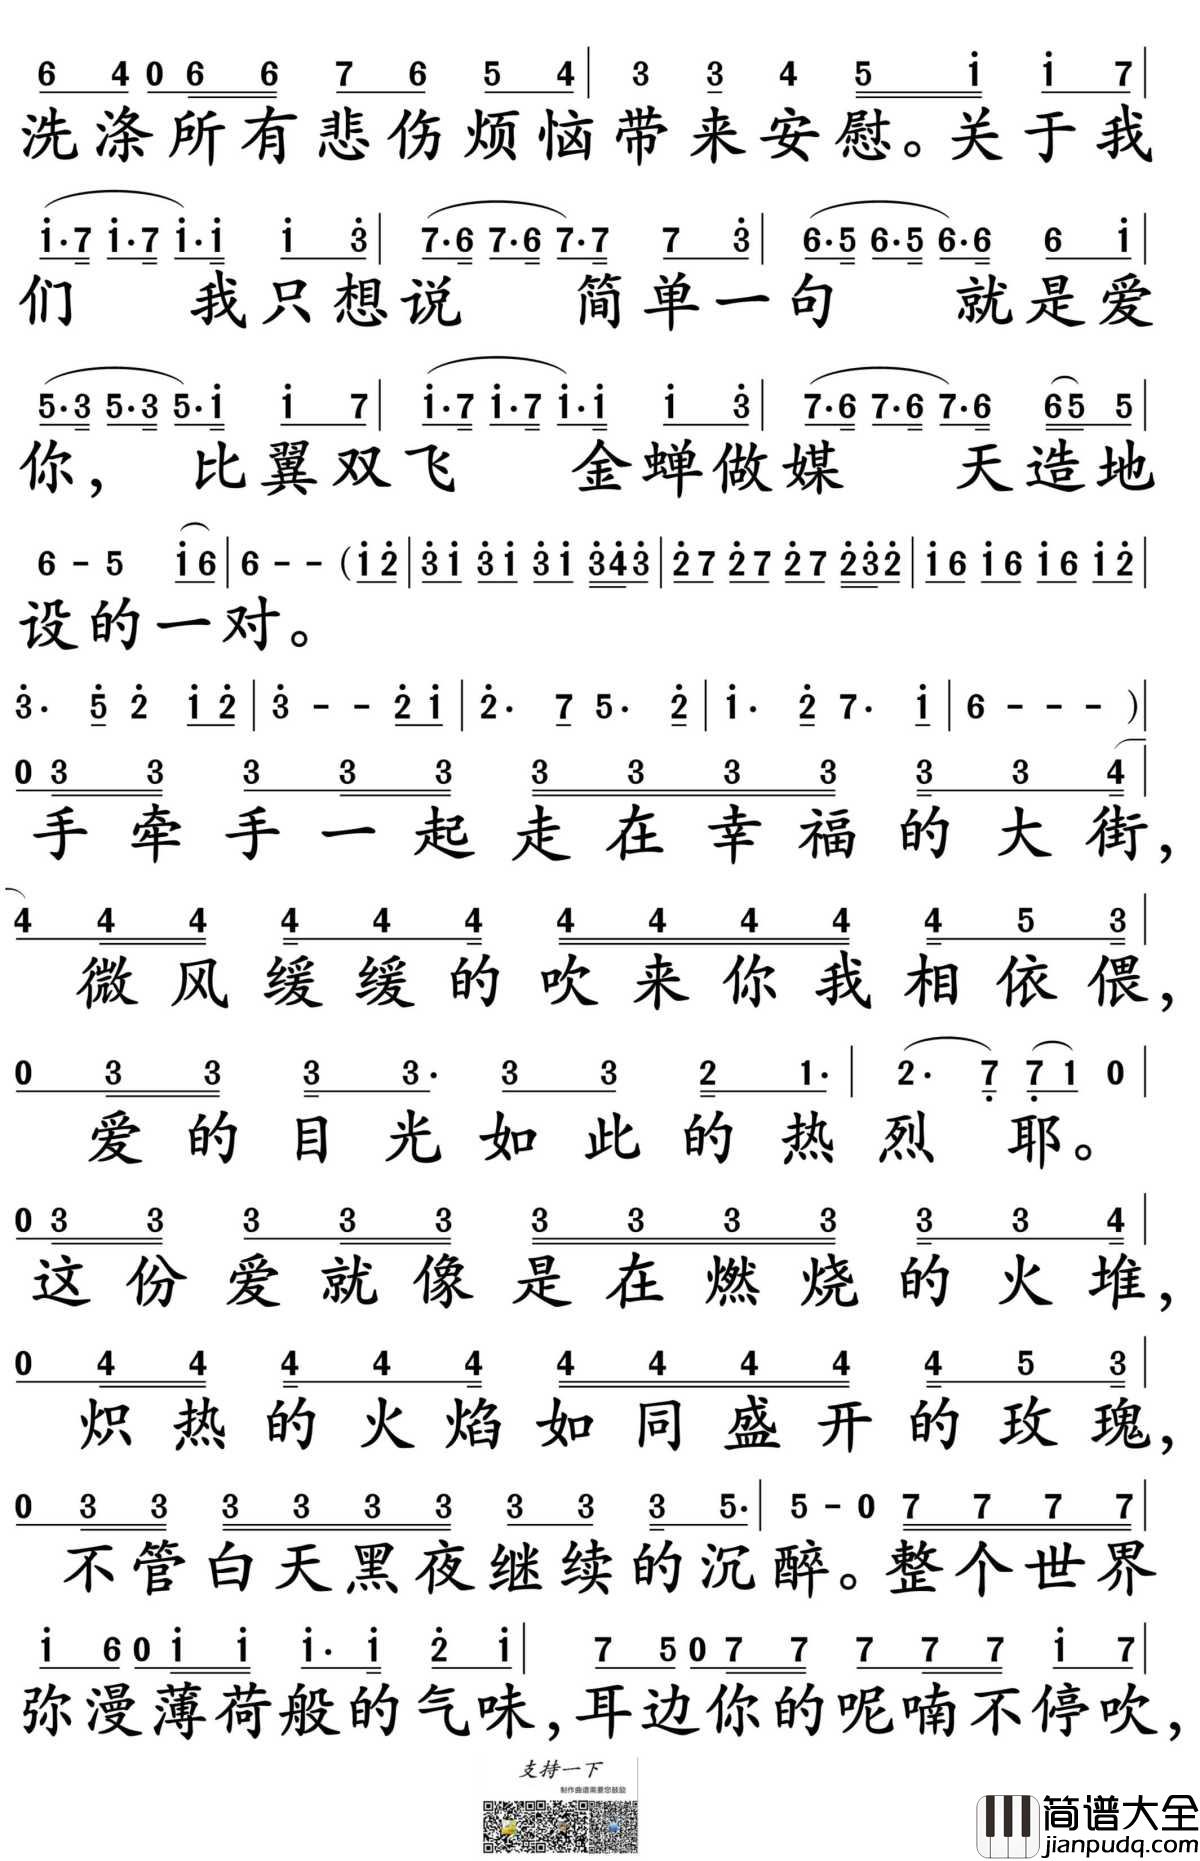 6 4 0 6 6 7 6 5 4 | 3 3 4 5 i i 7
洗涤所有悲伤烦恼带来安慰。关于我
i·7 i·7 i·i i 3 | 7·6 7·6 7·7 7 3 | 6·5 6·5 6·6 6 i |
们 我只想说 简单一句 就是爱
5·3 5·3 5·i i 7 | i·7 i·7 i·i i 3 | 7·6 7·6 7·6 65 5 |
你, 比翼双飞 金蝉做媒 天造地
6 - 5 i6 | 6 - - (i2 | 3i 3i 3i 343 | 27 27 27 232 | i6 i6 i6 i2 |
设的一对。
3· 5 2 i2 | 3 - - 2i | 2· 7 5· 2 | i· 2 7· i | 6 - - - ) |
0 3 3 3 3 3 3 3 3 3 3 3 4 |
手牵手一起走在幸福的大街,
4 4 4 4 4 4 4 4 4 4 4 5 3 |
微风缓缓的吹来你我相依偎,
0 3 3 3 3· 3 3 2 1· | 2· 7 71 0 |
爱的目光如此的热烈 耶。
0 3 3 3 3 3 3 3 3 3 3 3 4 |
这份爱就像是在燃烧的火堆,
0 4 4 4 4 4 4 4 4 4 4 5 3 |
炽热的火焰如同盛开的玫瑰,
0 3 3 3 3 3 3 3 3 3 5· | 5 - 0 7 7 7 7 |
不管白天黑夜继续的沉醉。整个世界
i 6 0 i i i· i 2 i | 7 5 0 7 7 7 7 7 i 7 |
弥漫薄荷般的气味,耳边你的呢喃不停吹,
支持一下
制作曲谱需要您鼓励
简谱大全
jianpudq.com